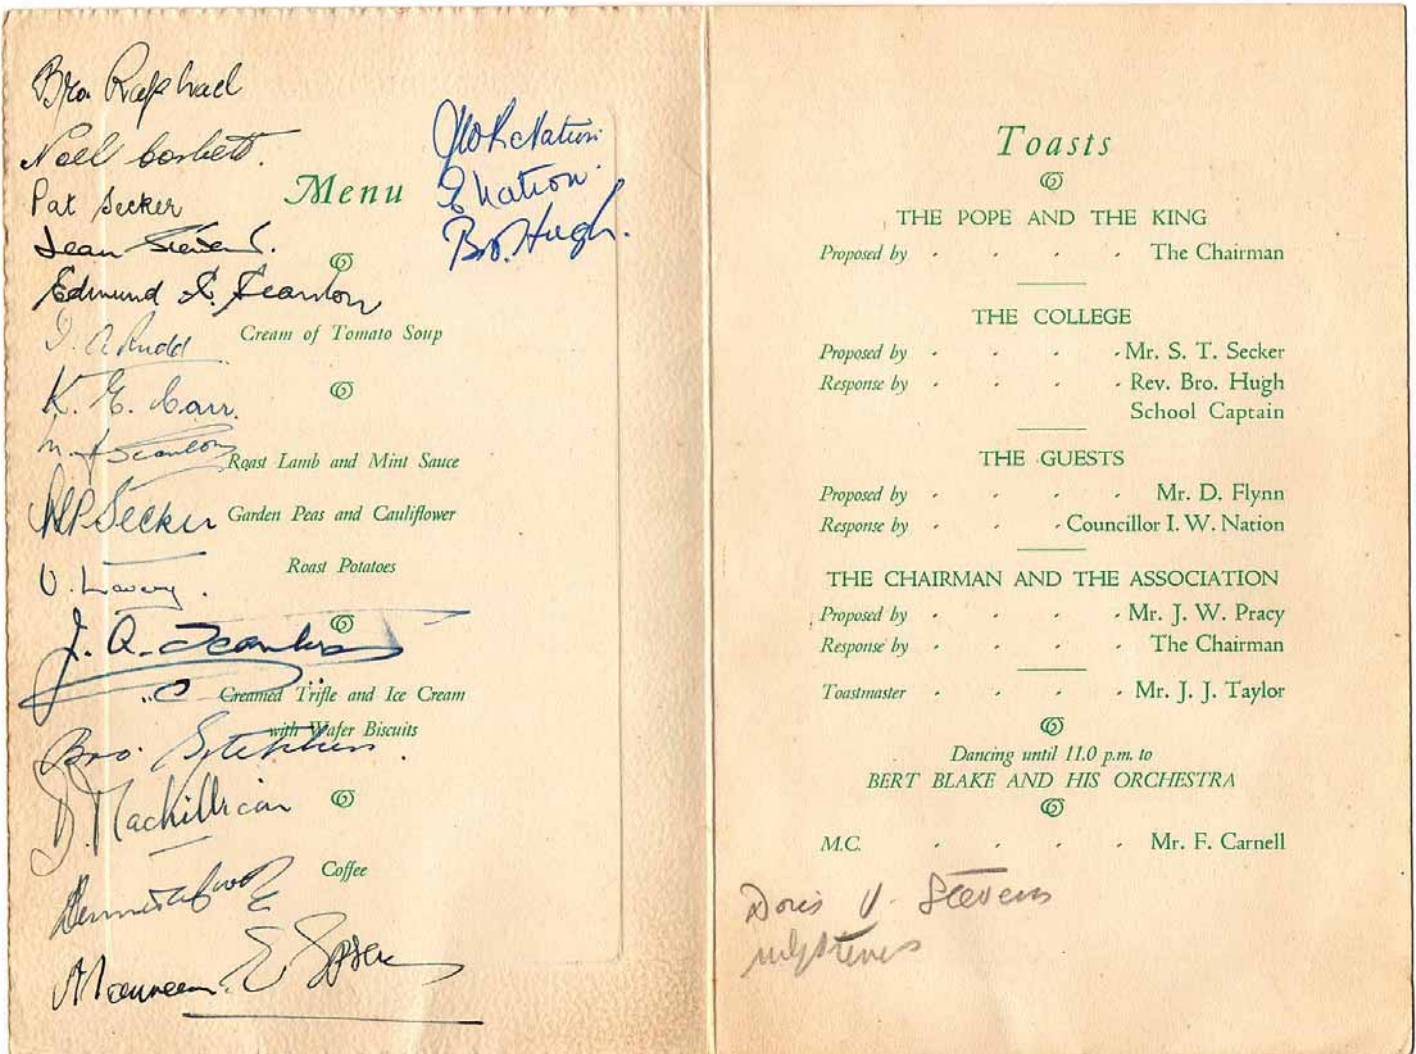 Bro. Raphael
Noel Corbett.
Pat Secker
Jean Stevens.
Edmund S. Scanlon
D. A. Rudd
K. E. Carr.
M. J. Scanlon
Secker
V.
J. Q. Scanlon
Bro. Stephen.
D. MacKillican
Maureen E.
Nation
E Nation.
Bro. Hugh.
Menu
Cream of Tomato Soup
Roast Lamb and Mint Sauce
Garden Peas and Cauliflower
Roast Potatoes
Creamed Trifle and Ice Cream
with Wafer Biscuits
Coffee
Toasts
THE POPE AND THE KING
Proposed by - - - The Chairman
THE COLLEGE
Proposed by - - - Mr. S. T. Secker
Response by - - - Rev. Bro. Hugh
School Captain
THE GUESTS
Proposed by - - - Mr. D. Flynn
Response by - - - Councillor I. W. Nation
THE CHAIRMAN AND THE ASSOCIATION
Proposed by - - - Mr. J. W. Pracy
Response by - - - The Chairman
Toastmaster - - - Mr. J. J. Taylor
Dancing until 11.0 p.m. to
BERT BLAKE AND HIS ORCHESTRA
M.C. - - - Mr. F. Carnell
Doris V. Stevens
Stevens